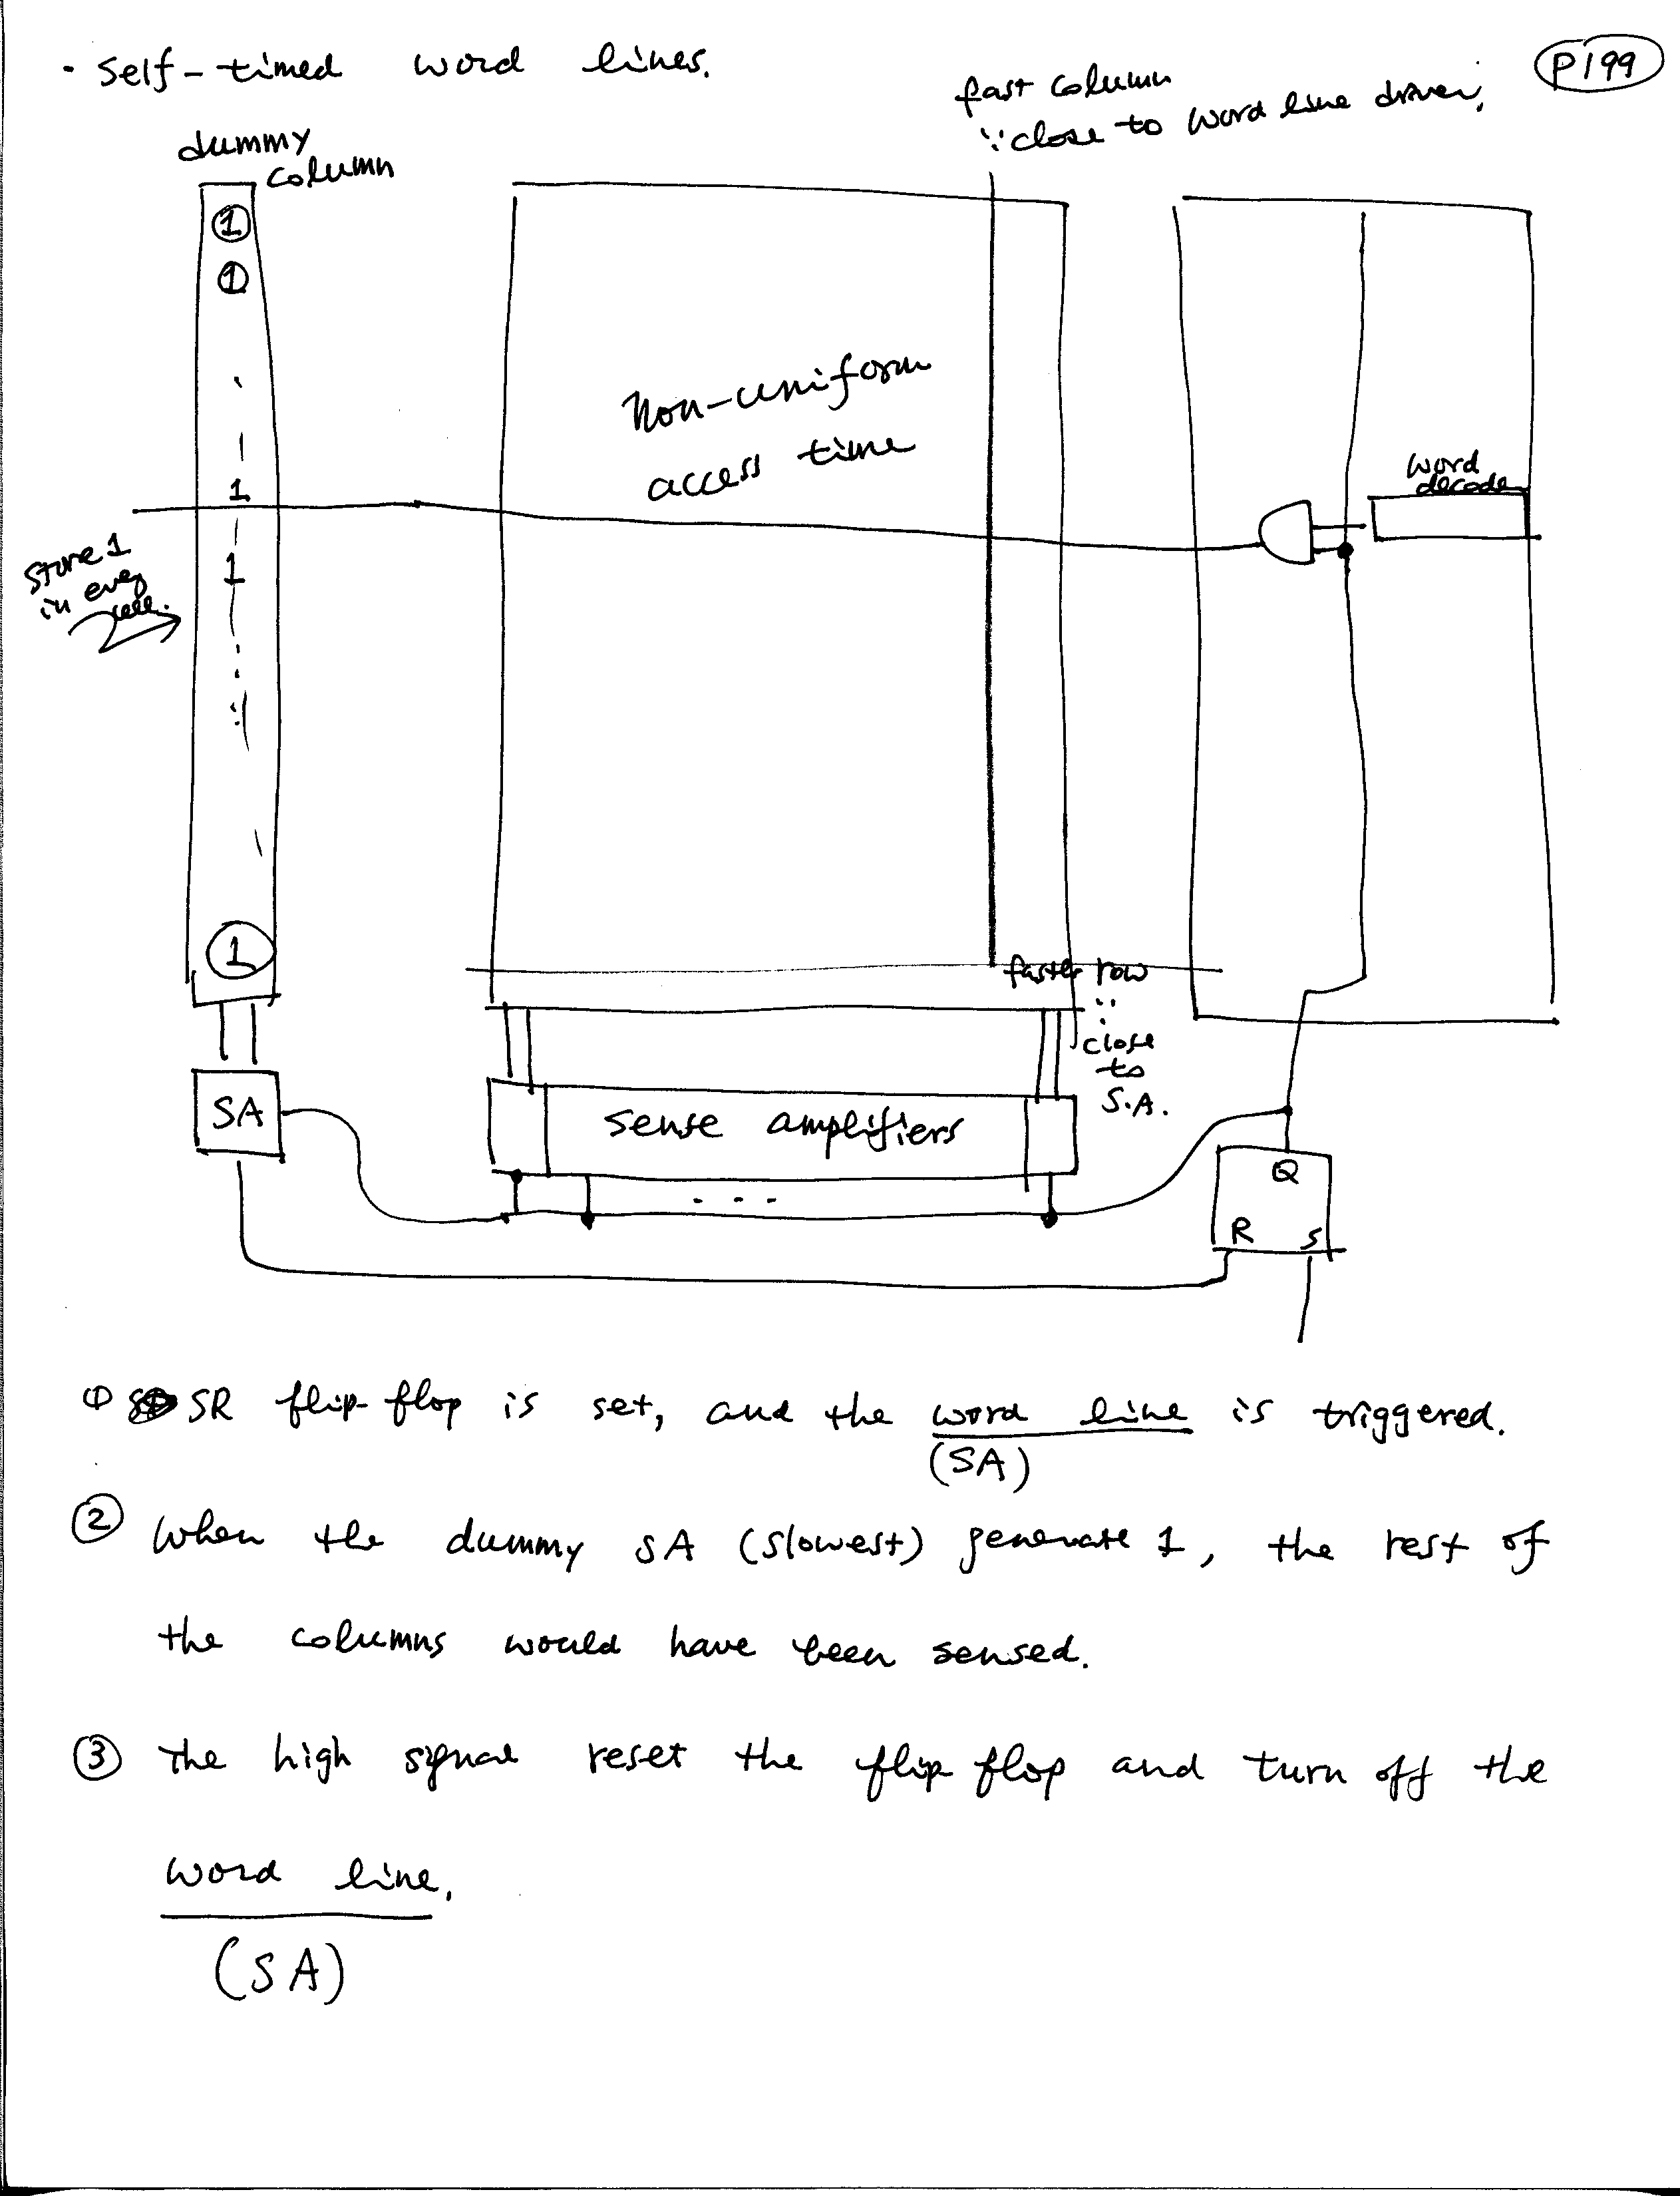 · Self-timed word lines.
P199
fast column
∵ close to word line driver.
dummy
column
1
1
Non-uniform
access time
word
decoder
1
1
store 1
in every
cell.
1
faster row
∵
close
to
S.A.
SA
sense amplifiers
. . .
Q
R S
① SR flip-flop is set, and the word line is triggered.
(SA)
② When the dummy SA (slowest) generate 1, the rest of
the columns would have been sensed.
③ The high signal reset the flip flop and turn off the
word line.
(SA)